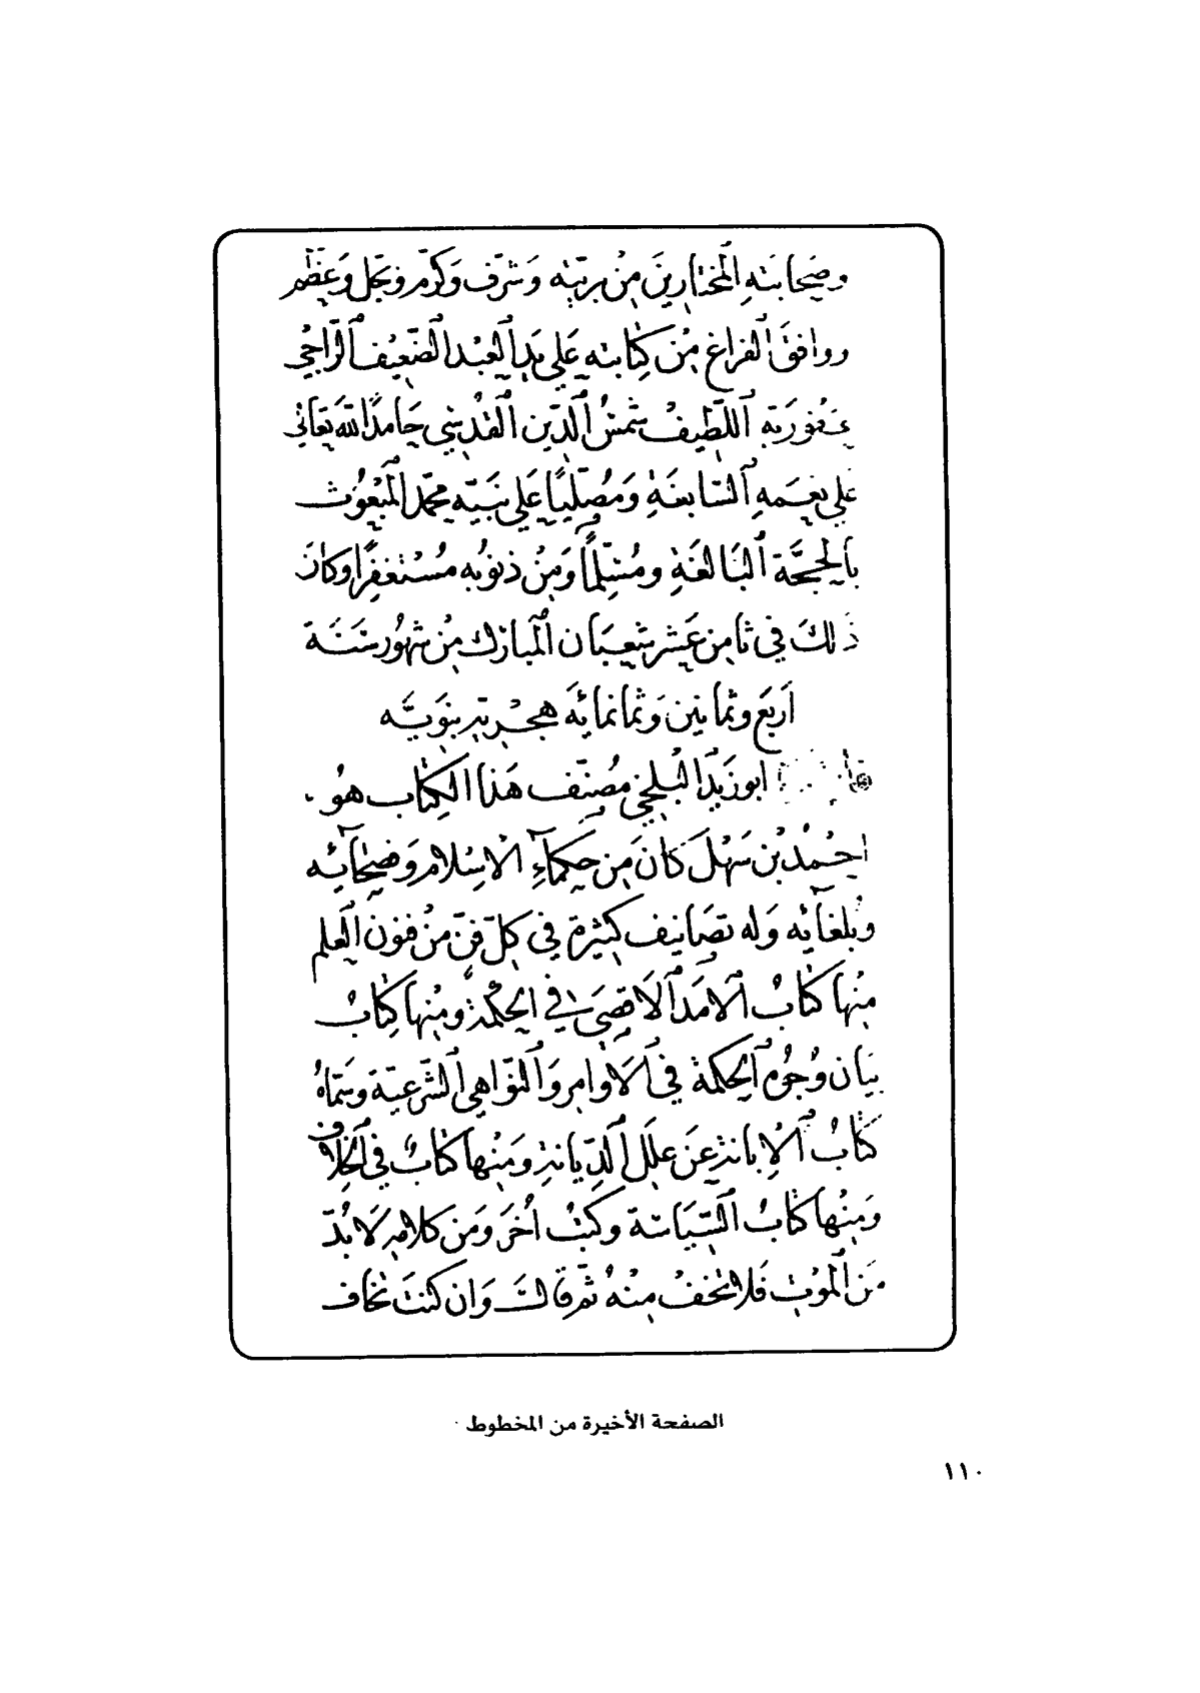 وصَحابَتهِ المختارينَ مِنْ بريّته وَشرّف وَكرّم وبجّل وَعَظّم
ووافقَ الفراغ مِنْ كِتابته عَلي يَدِ العَبْد الضّعِيْف الرّاجيْ
عَفوْ رَبّهِ اللّطِيفْ شمسُ الدّين القدْسِي حَامدًا لله تعَالى
عَلي نِعَمهِ السّابغَةِ وَمُصَليًا عَلي نَبيّه محمّد المبْعُوْث
بالحجَّة البَالغَةِ ومُسَلِّماً وَمِنْ ذنوُبه مسُتغفِرًا وكانَ
ذلكَ في ثامِن عَشر شعبَان المبارَك مِنْ شهُور سَنَة
اَربَع وثمانين وَثمانمائة هجْرية نبَويَّه
ابوزَيْد البْلخي مُصنّف هَذا الكِتاب هوُ
احْمدْ بْن سَهْل كانَ مِن حكماَءِ الاسِلام وَفصحآئِه
وبُلغآئِه وَله تصَانيف كثيرة في كلّ فنّ مِنْ فنون العِلم
مِنْها كتابُ الامَد الاَقصَى في الحكْمة ومِنْها كِتابُ
بيَان وُجُوْه الحكمة في الاَوامِر وَالنوّاهي الشرّعيّة وسَمّاهُ
كتابُ الاِبانة عَن عِلَل الدّيانة ومِنْها كتابٌ في الخِلاف
وَمِنْها كتابُ السّيَاسَة وكتبٌ اُخرَ وَمن كلامه لاَ بُدّ
مَن الموْت فَلا تخفْ مِنْهُ ثمّ قالَ وَان كنتَ تخاف
الصفحة الأخيرة من المخطوط
١١٠